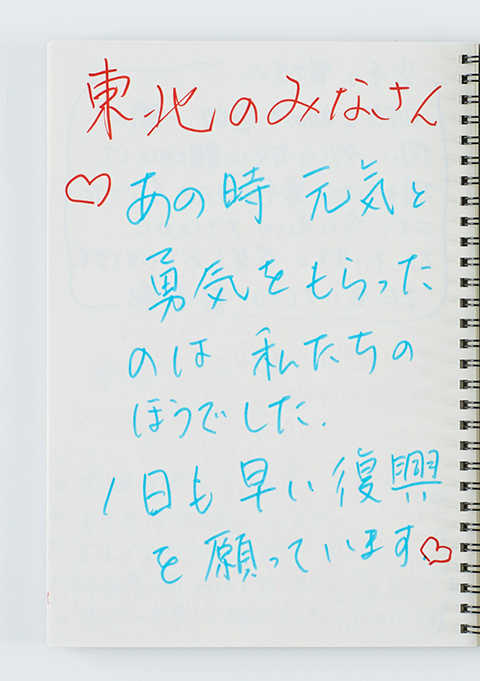 東北のみなさん
♡あの時 元気と
勇気をもらった
のは 私たちの
ほうでした.
1日も早い復興
を願っています♡